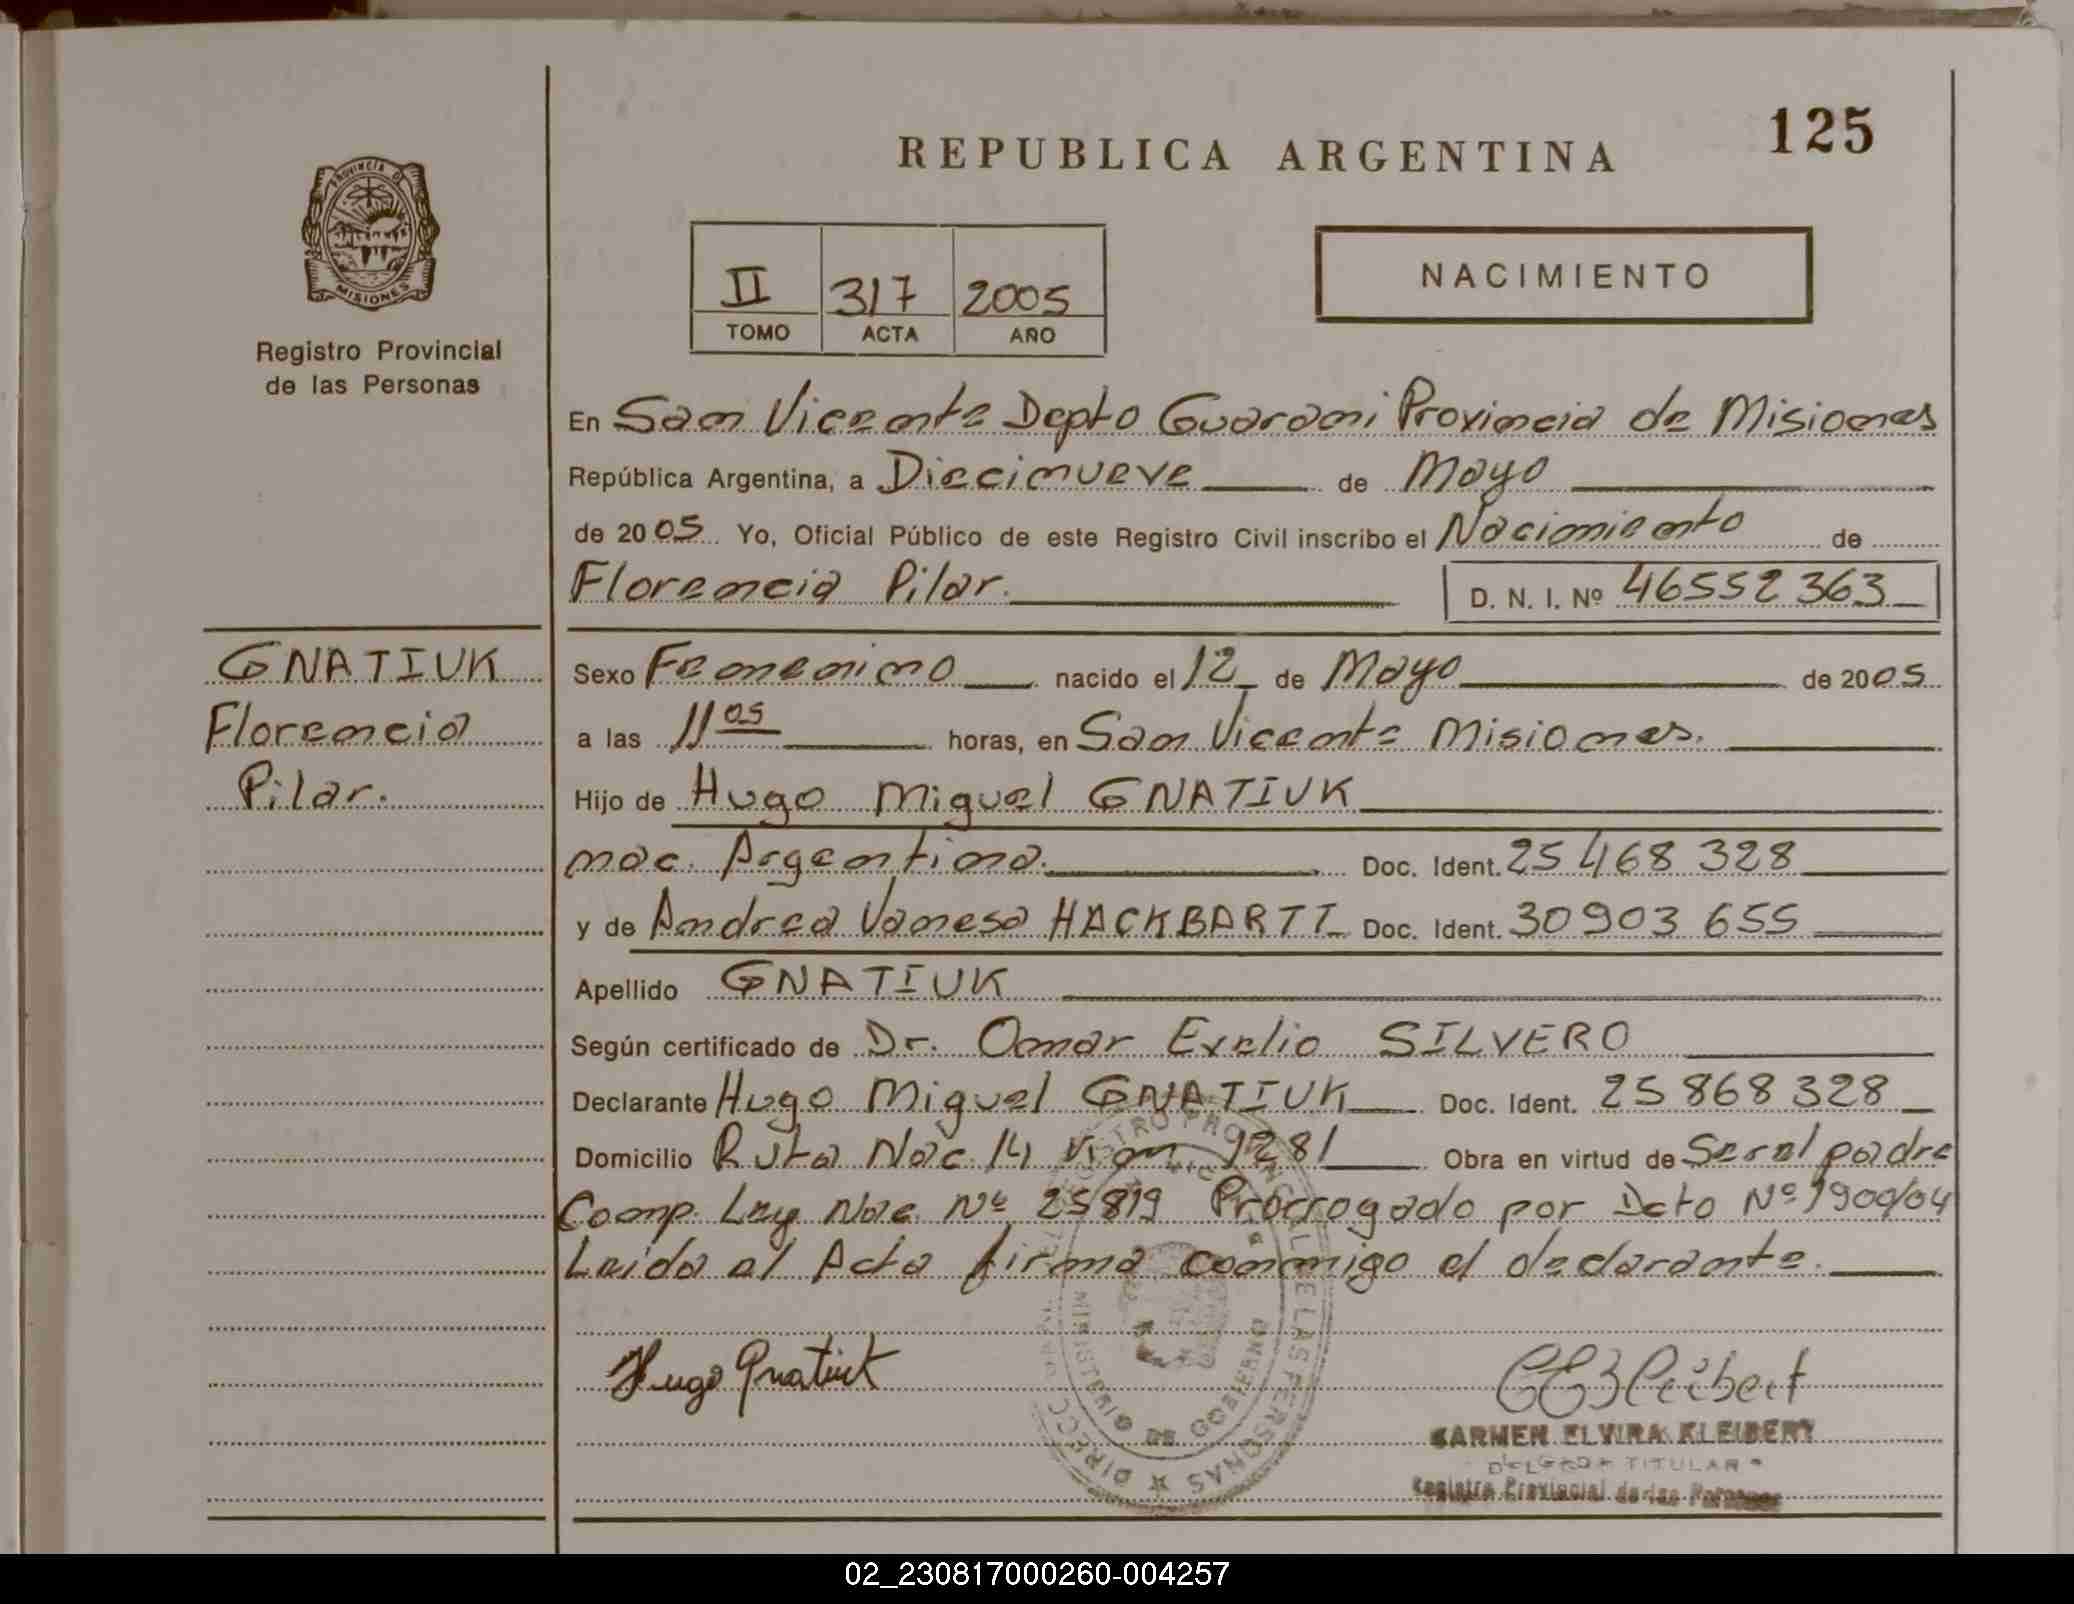 125
REPUBLICA ARGENTINA
PROVINCIA D
MISIONES
Registro Provincial
de las Personas
II 317 2005
TOMO ACTA AÑO
NACIMIENTO
En San Vicente Depto Guarani Provincia de Misiones
República Argentina, a Diecinueve de Mayo
de 2005 Yo, Oficial Público de este Registro Civil inscribo el Nacimiento de
Florencia Pilar. D. N. I. Nº 46552363
GNATIUK
Florencia
Pilar.
Sexo Femenino nacido el 12 de Mayo de 2005
a las 11 05 horas, en San Vicente Misiones.
Hijo de Hugo Miguel GNATIUK
nac. Argentina. Doc. Ident. 25 468 328
y de Andrea Vanesa HACKBARTT Doc. Ident. 30903 655
Apellido GNATIUK
Según certificado de Dr. Omar Evelio SILVERO
Declarante Hugo Miguel GNATIUK Doc. Ident. 25868328
Domicilio Ruta Nac. 14 Km 1281 Obra en virtud de Ser el padre
Comp. Ley Nac. Nº 25819 Prorrogado por Dcto Nº 1900/04
Leida el Acta firma conmigo el declarante.
Hugo Gnatiuk
CARMEN ELVIRA KLEIBERT
TITULAR
Registro Provincial de las Personas
MINISTERIO DE GOBIERNO
DE LAS PERSONAS
02_230817000260-004257